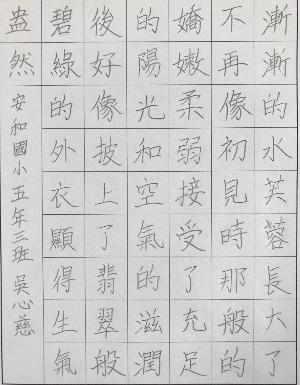 漸漸的水芙蓉長大了
不再像初見時那般的
嬌嫩柔弱接受了充足
的陽光和空氣的滋潤
後好像披上了翡翠般
碧綠的外衣顯得生氣
盎然
安和國小五年三班 吳心慈